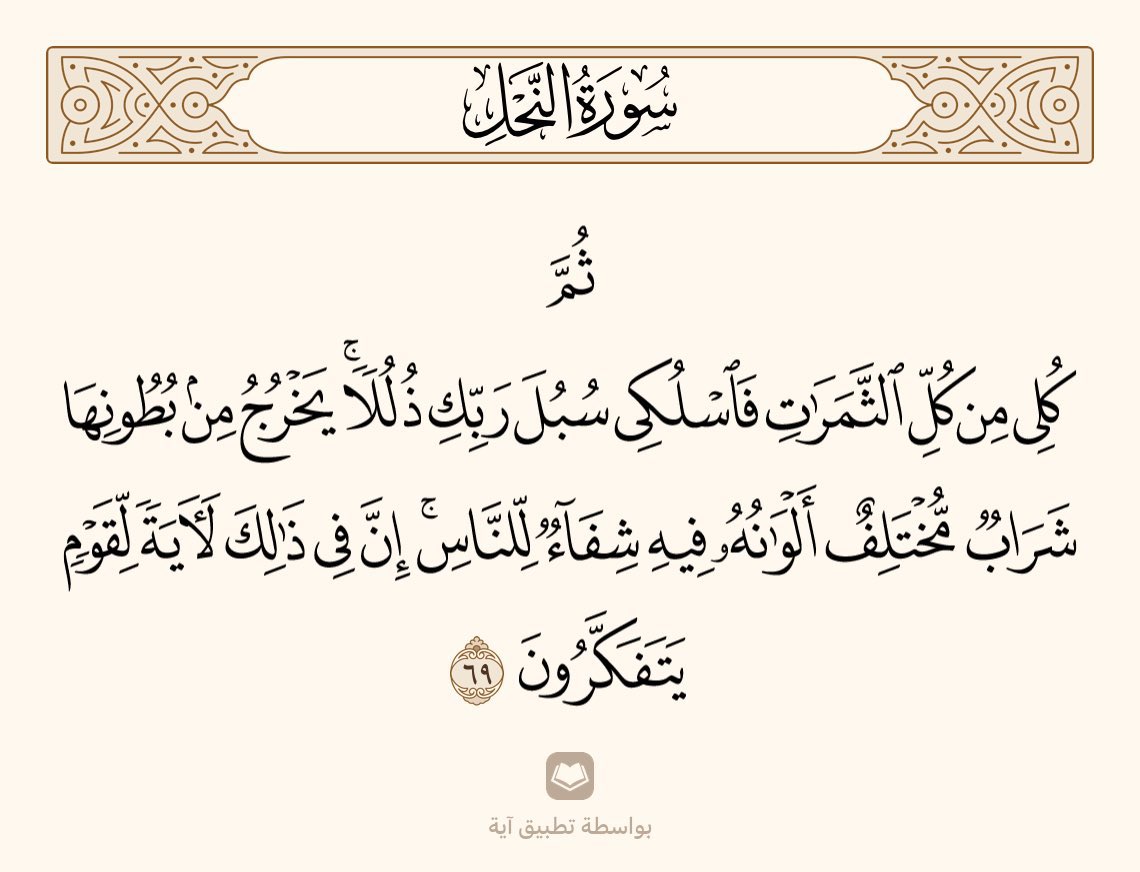 سُورَةُ النَّحْلِ
ثُمَّ
كُلِى مِن كُلِّ ٱلثَّمَرَٰتِ فَٱسْلُكِى سُبُلَ رَبِّكِ ذُلُلًا ۚ يَخْرُجُ مِنۢ بُطُونِهَا
شَرَابٌ مُّخْتَلِفٌ أَلْوَٰنُهُۥ فِيهِ شِفَآءٌ لِّلنَّاسِ ۚ إِنَّ فِى ذَٰلِكَ لَـَٔايَةً لِّقَوْمٍ
يَتَفَكَّرُونَ ٦٩
بواسطة تطبيق آية